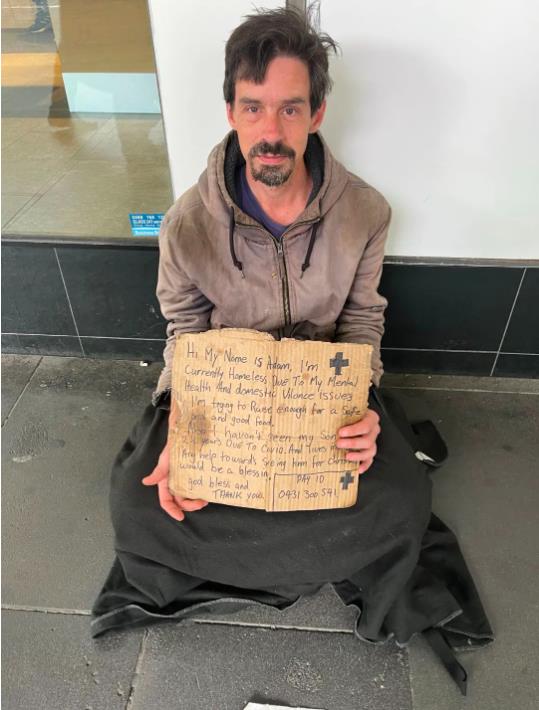 Hi My Name is Adam, I'm
Currently Homeless Due To My Mental
Health And domestic Vilance issues
I'm trying to Raise enough for a Safe
and good food.
I haven't seen my Son
years DUE TO Covid. And Lives
Any help towards seeing him for
would be a blessin
god bless and
THANK you.
PAY ID
0431 300 541